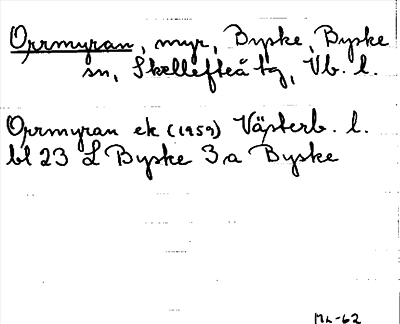 Orrmyran, myr, Byske, Byske
sn, Skellefteå tg, Vb. l.
Orrmyran ek (1959) Västerb. l.
bl 23 L Byske 3a Byske
ML-62